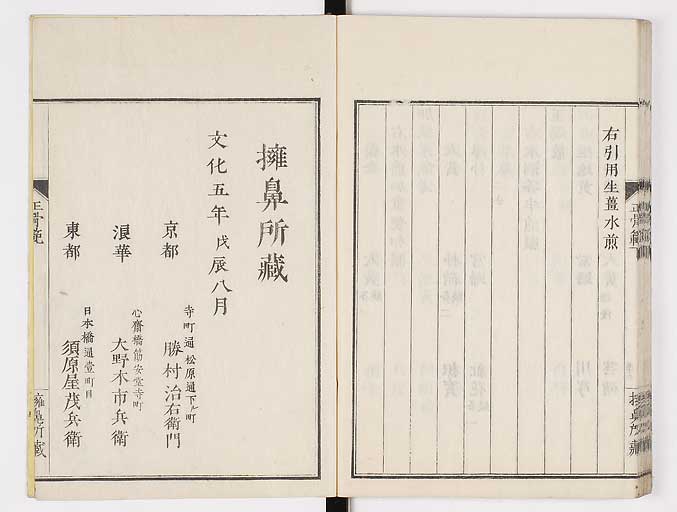 右引用生薑水煎
正骨範
擁鼻所藏
擁鼻所藏
文化五年戊辰八月
京都 寺町通松原通下ル町 勝村治右衛門
浪華 心齋橋筋安堂寺町 大野木市兵衛
東都 日本橋通壹町目 須原屋茂兵衛
正骨範
擁鼻所藏